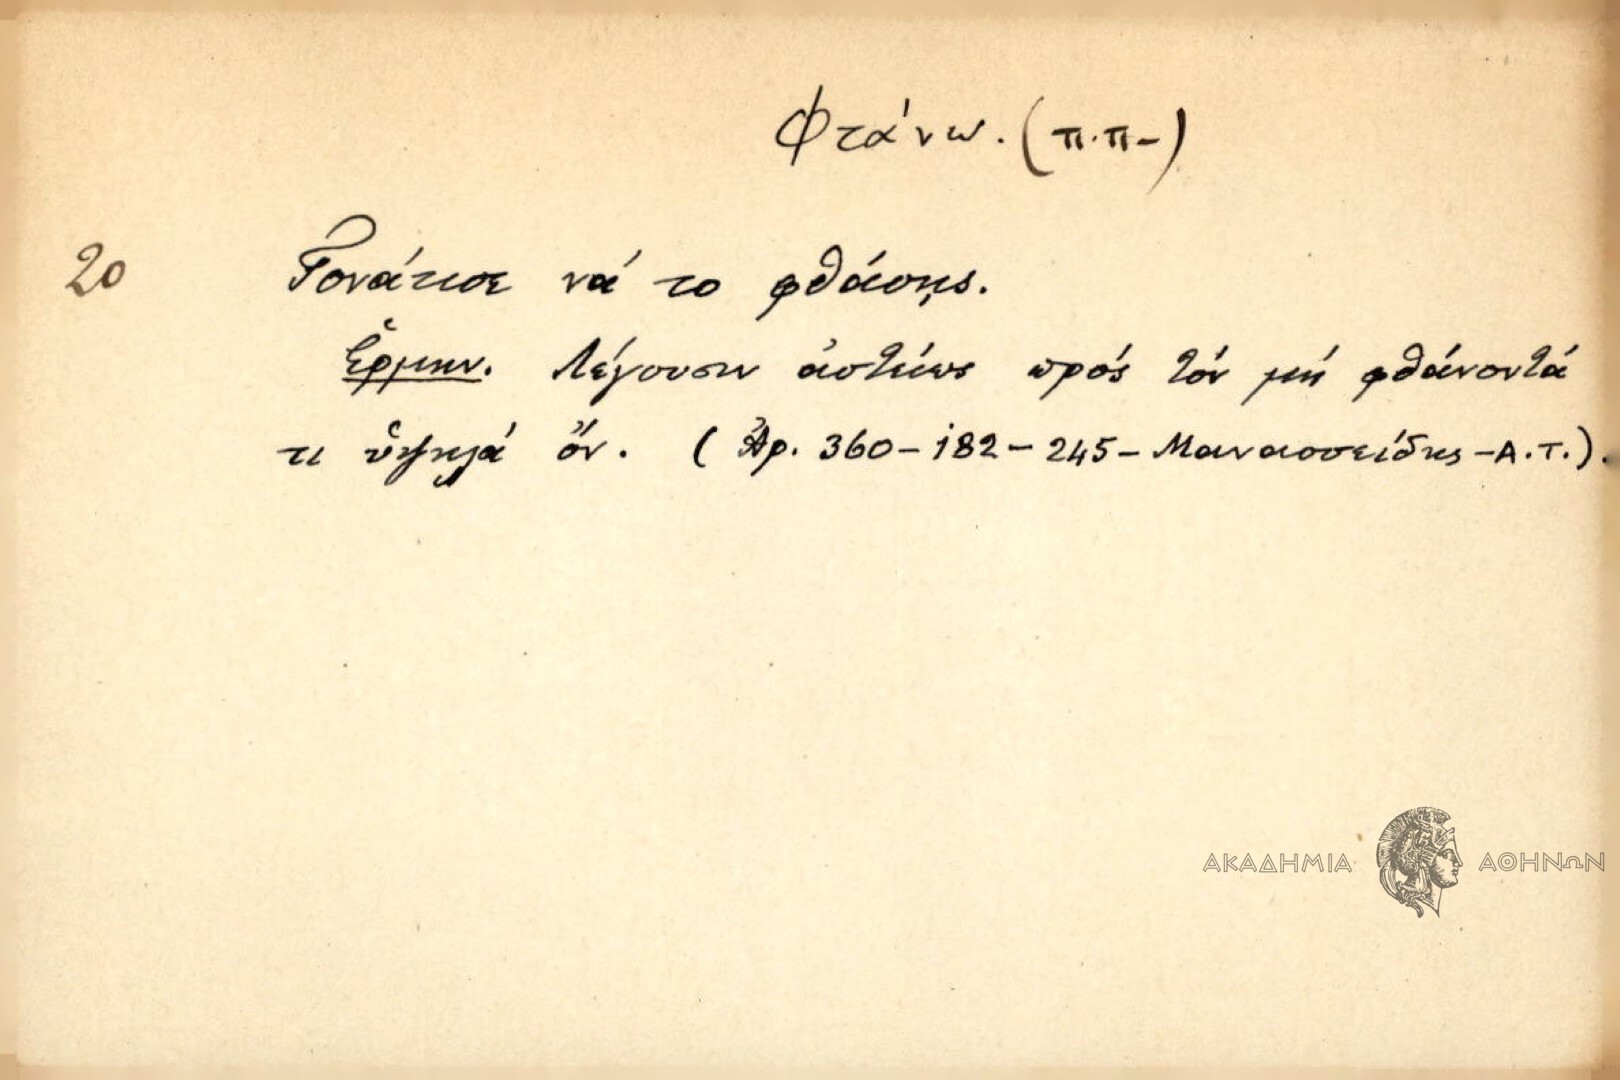 Φτάνω. (π.π-)
20 Γονάτισε νά το φθάσῃς.
Ἑρμην. Λέγουσιν ἀστείως πρός τόν μή φθάνοντά
τι ὑψηλά ὄν. (Ἀρ. 360-182-245-Μαναασσείδης-Α.Τ.).
ΑΚΑΔΗΜΙΑ ΑΘΗΝΩΝ